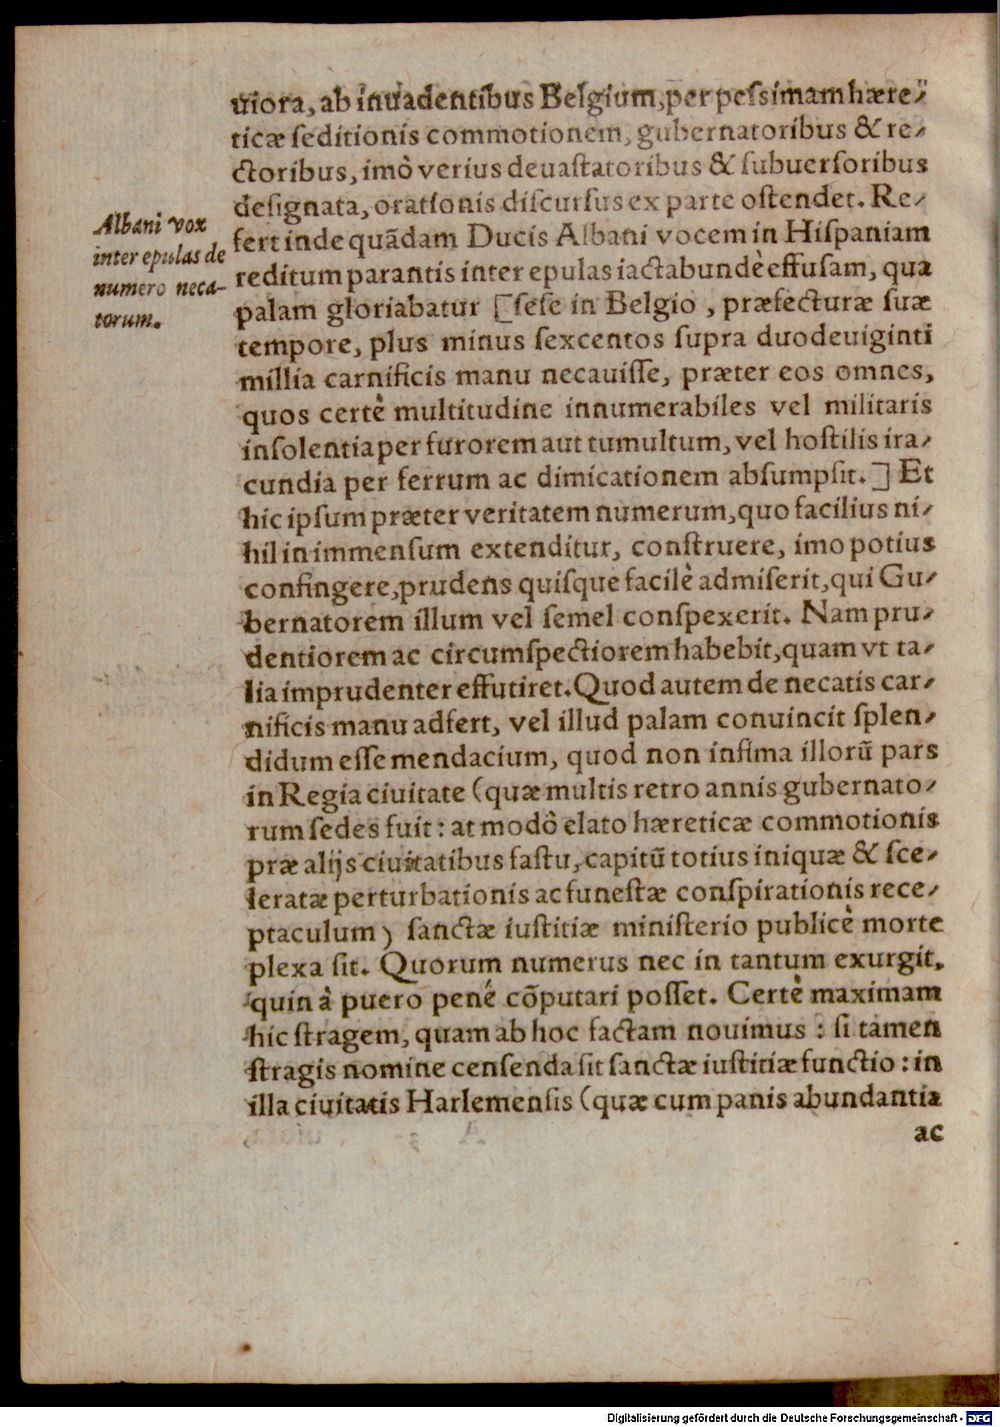 uiora, ab inuadentibus Belgium, per pessimam hære⸗
ticæ seditionis commotionem, gubernatoribus & re⸗
ctoribus, imò verius deuastatoribus & subuersoribus
designata, orationis discursus ex parte ostendet. Re⸗
fert inde quãdam Ducis Albani vocem in Hispaniam
reditum parantis inter epulas iactabundè effusam, qua
palam gloriabatur [sese in Belgio , præfecturæ suæ
tempore, plus minus sexcentos supra duodeuiginti
millia carnificis manu necauisse, præter eos omnes,
quos certè multitudine innumerabiles vel militaris
insolentia per furorem aut tumultum, vel hostilis ira⸗
cundia per ferrum ac dimicationem absumpsit.] Et
hic ipsum præter veritatem numerum, quo facilius ni⸗
hil in immensum extenditur, construere, imo potius
confingere, prudens quisque facilè admiserit, qui Gu⸗
bernatorem illum vel semel conspexerit. Nam pru⸗
dentiorem ac circumspectiorem habebit, quam vt ta⸗
lia imprudenter effutiret. Quod autem de necatis car⸗
nificis manu adfert, vel illud palam conuincit splen⸗
didum esse mendacium, quod non infima illorũ pars
in Regia ciuitate (quæ multis retro annis gubernato⸗
rum sedes fuit : at modò elato hæreticæ commotionis
præ alijs ciuitatibus fastu, capitũ totius iniquæ & sce⸗
leratæ perturbationis ac funestæ conspirationis rece⸗
ptaculum) sanctæ iustitiæ ministerio publicè morte
plexa sit. Quorum numerus nec in tantum exurgit,
quin à puero penè cõputari posset. Certè maximam
hic stragem, quam ab hoc factam nouimus : si tamen
stragis nomine censenda sit sanctæ iustitiæ functio : in
illa ciuitatis Harlemensis (quæ cum panis abundantia
ac
Albani vox
inter epulas de
numero neca-
torum.
Digitalisierung gefördert durch die Deutsche Forschungsgemeinschaft - DFG